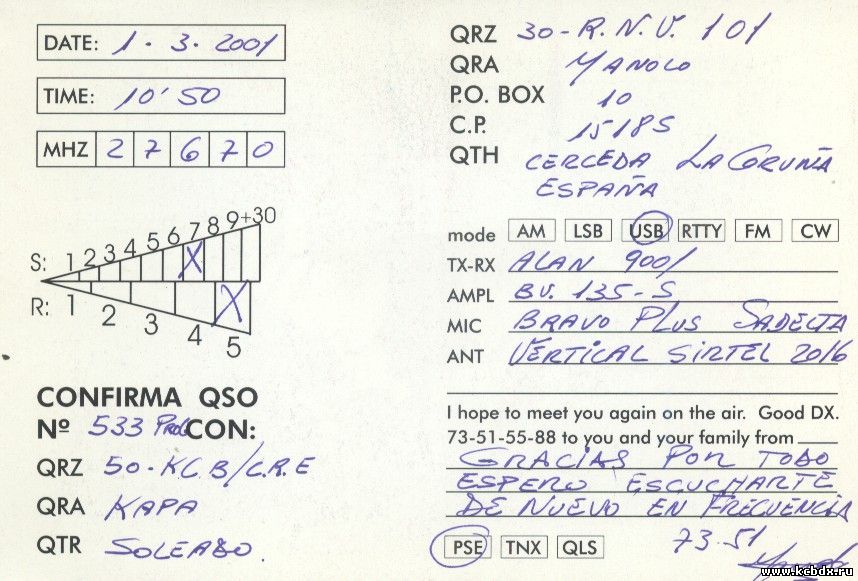 DATE: 1 · 3 · 2001
TIME: 10' 50
MHZ 2 7 6 7 0
S: 1 2 3 4 5 6 7 8 9 +30
X
R: 1 2 3 4 5
X
CONFIRMA QSO
Nº 533 CON:
QRZ 50 - K.C.B/C.R.E
QRA KAPA
QTR SOLEADO.
QRZ 30 - R. N. V. 101
QRA MANOLO
P.O. BOX 10
C.P. 15185
QTH CERCEDA LA CORUÑA
ESPAÑA
mode AM LSB USB RTTY FM CW
TX-RX ALAN 9001
AMPL BV. 135 - S
MIC BRAVO PLUS SADELTA
ANT VERTICAL SIRTEL 2016
I hope to meet you again on the air. Good DX.
73-51-55-88 to you and your family from
GRACIAS POR TODO
ESPERO ESCUCHARTE
DE NUEVO EN FRECUENCIA
PSE TNX QLS
73·51
www.kcbdx.ru